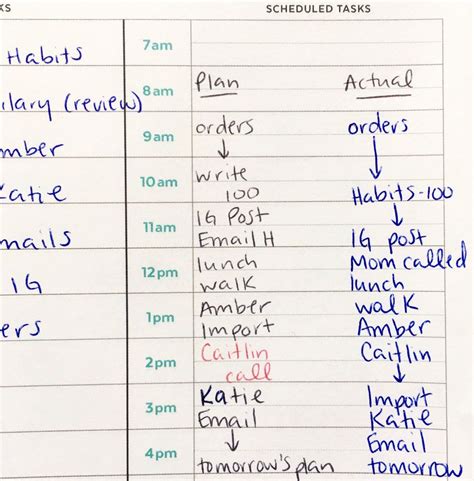 KS
Habits
ilary (review)
mber
Katie
mails
IG
ers
7am
8am
9am
10am
11am
12pm
1pm
2pm
3pm
4pm
SCHEDULED TASKS
Plan
orders
↓
write
100
IG Post
Email H
lunch
walk
Amber
Import
Caitlin
call
Katie
Email
↓
tomorrow's plan
Actual
orders
↓
Habits-100
↓
IG post
Mom called
lunch
walk
Amber
Caitlin
↓
Import
Katie
Email
tomorrow